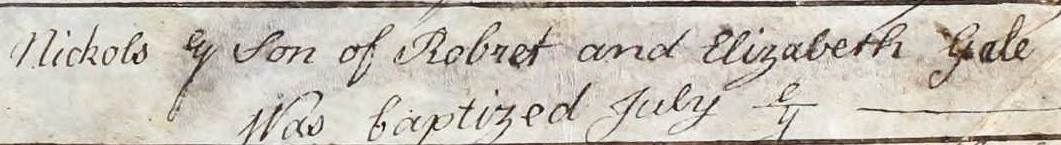 Nickols yᵉ Son of Robret and Elizabeth Gale
Was baptized July yᵉ